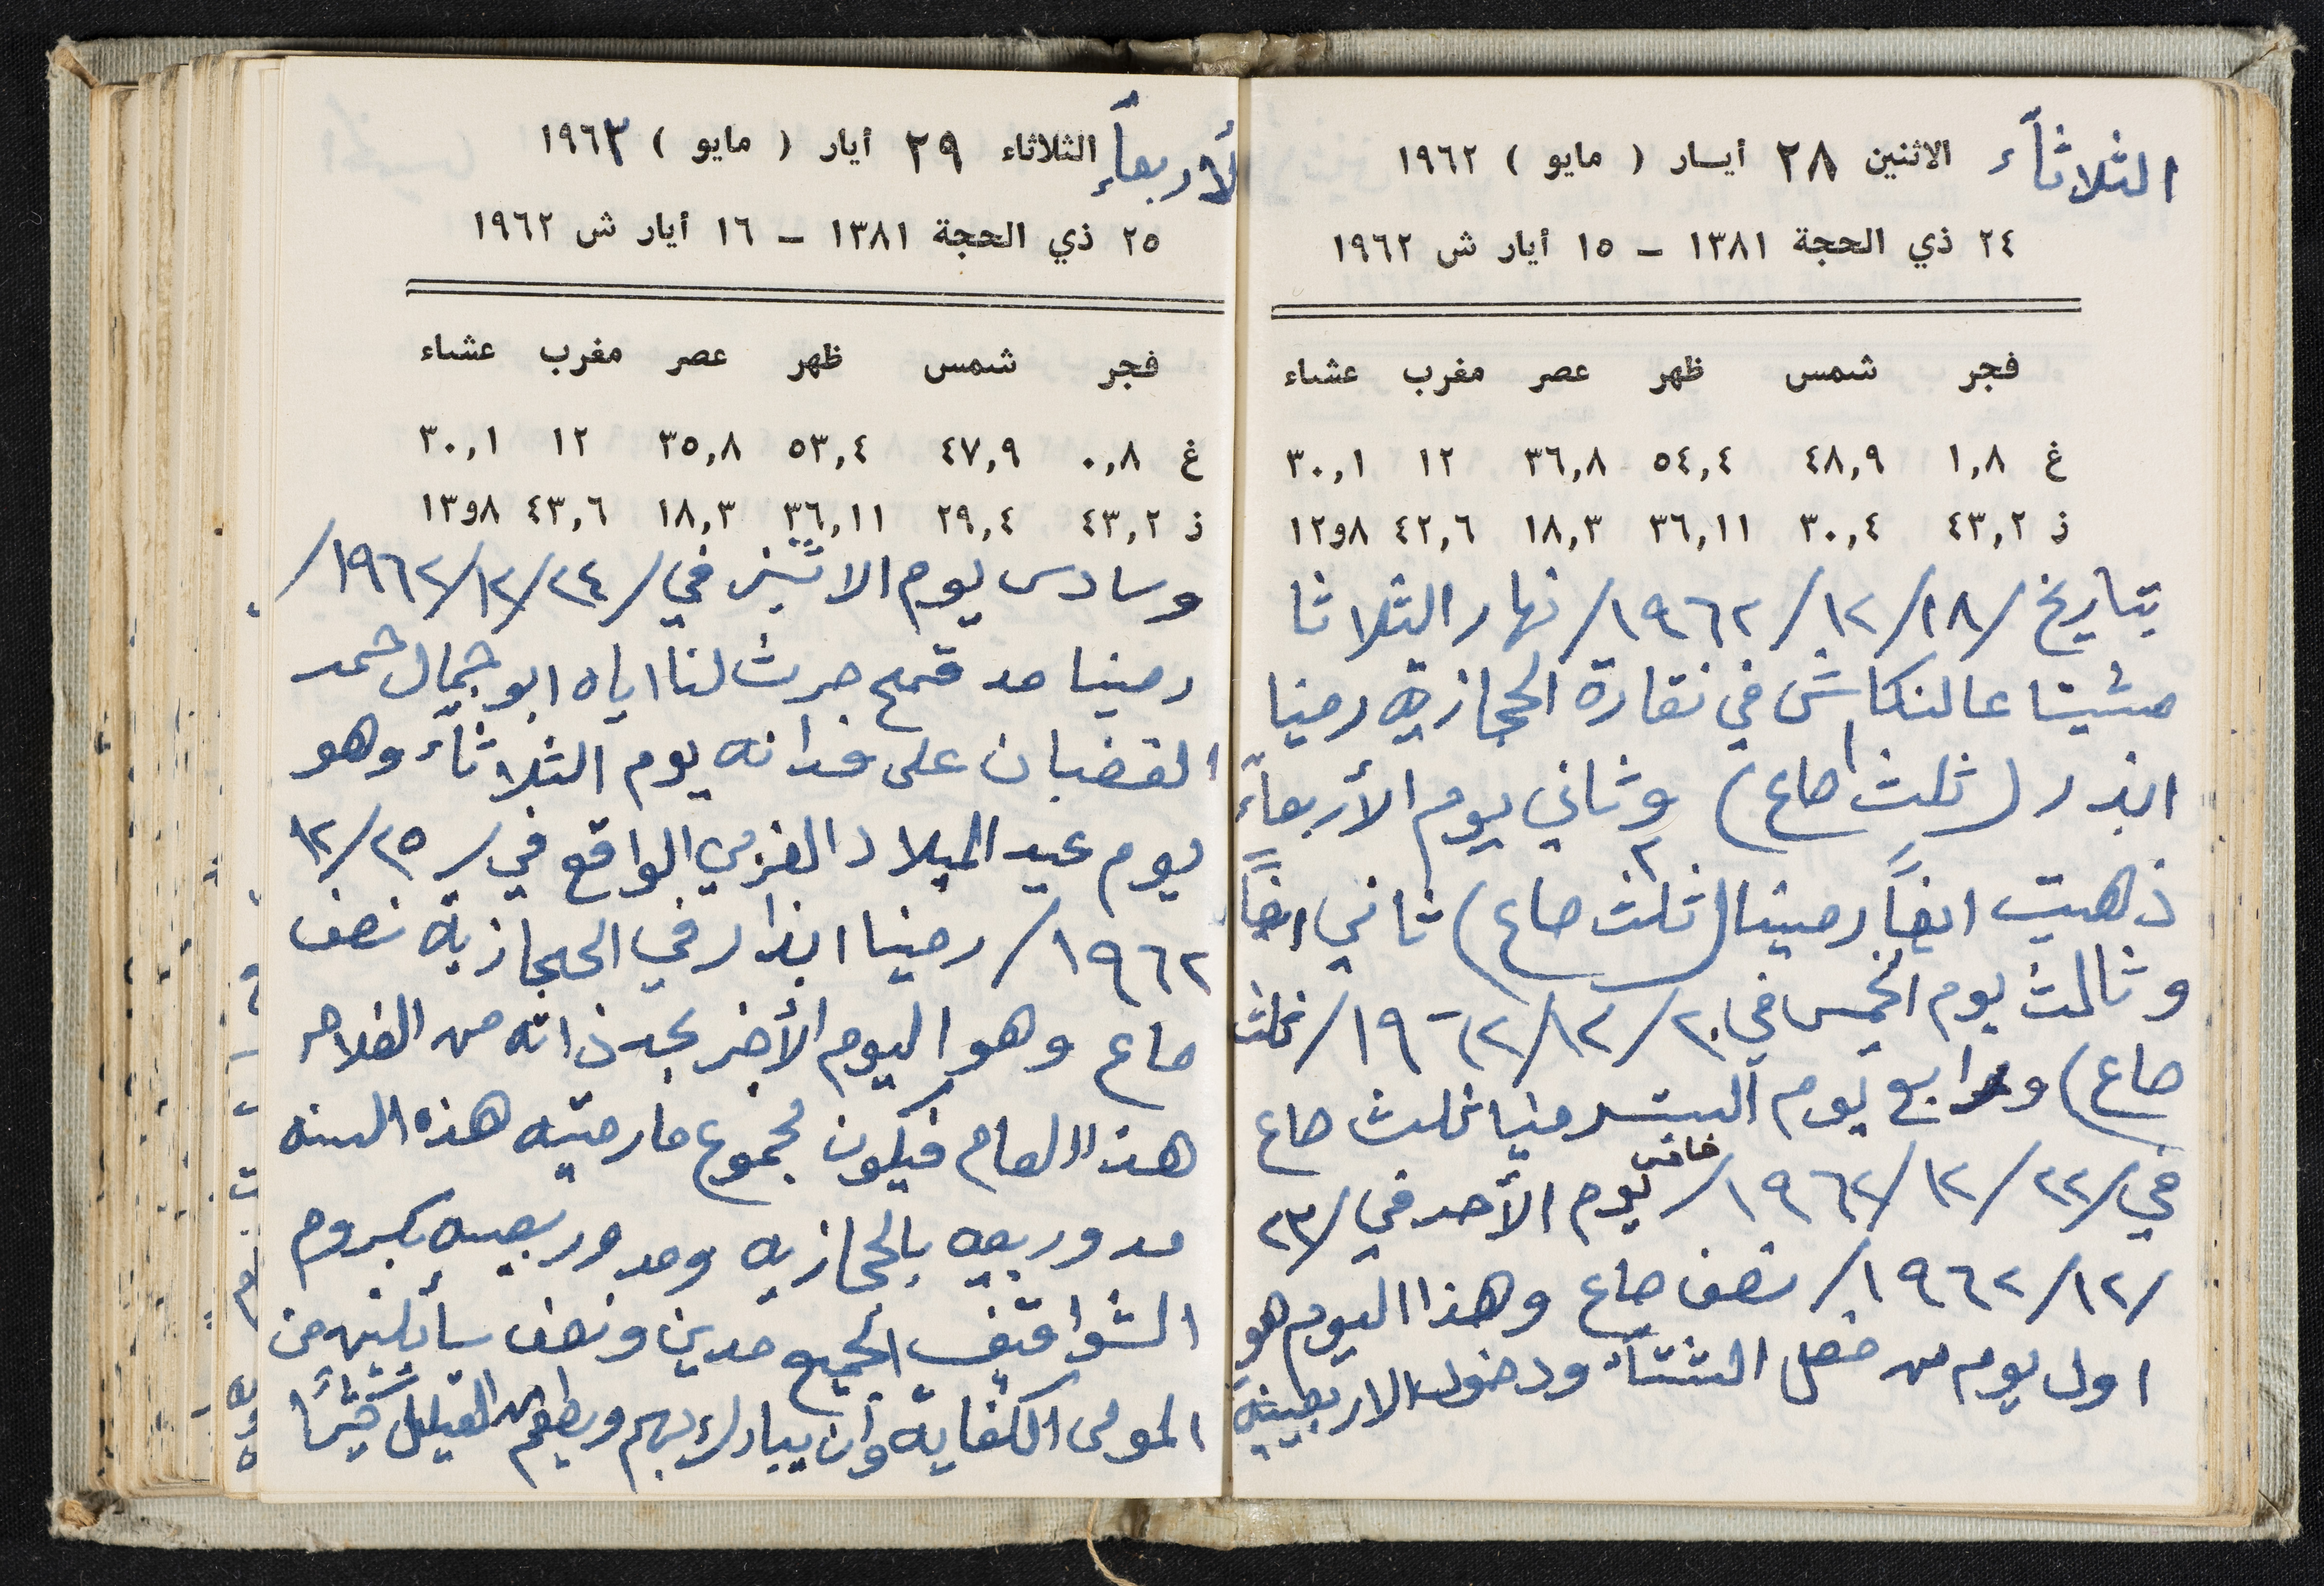 الثلاثآء الاثنين ٢٨ أيسار ( مايو ) ١٩٦٢
٢٤ ذي الحجة ١٣٨١ - ١٥ أيار ش ١٩٦٢
فجر شمس ظهر عصر مغرب عشاء
غ ١,٨ ٤٨,٩ ٥٤,٤ ٣٦,٨ ١٢ ٣٠,١
ز ٤٣,٢ ٣٠,٤ ٣٦,١١ ١٨,٣ ٤٢,٦ ٨و١٢
بتاريخ /١٨/١٢/١٩٦٢/ نهار الثلاثا
مشينا عالنكاش في نقارة الحجازية رمينا
ابذر (ثلث ١ صاع) وثاني يوم الأربعآء
ذهبت ايضاً رمينا (ثلث ٢ صاع) ثاني ايضاً
وثالث يوم الخميس في ٢٠/١٢/١٩٦٢/ ثلث
صاع) ورابع يوم السبت رمينا ثلث صاع
في /٢٢/١٢/١٩٦٢/ خامس يوم الأحد في /٢٣
/١٢/١٩٦٢/ نصف صاع وهذا اليوم هو
اول يوم من فصل الشتآء ودخول الاربعينية
لأربعآء الثلاثاء ٢٩ أيار ( مايو ) ١٩٦٣
٢٥ ذي الحجة ١٣٨١ - ١٦ أيار ش ١٩٦٢
فجر شمس ظهر عصر مغرب عشاء
غ ٠,٨ ٤٧,٩ ٥٣,٤ ٣٥,٨ ١٢ ٣٠,١
ز ٤٣,٢ ٢٩,٤ ٣٦,١١ ١٨,٣ ٤٣,٦ ٨و١٣
وسادس يوم الاثنين في /٢٤/١٢/١٩٦٢/
رمينا مد قمح حرث لنا اياه ابو جمال حمد
القضبان على فدانه يوم الثلاثآء وهو
يوم عيد الميلاد الغربي الواقع في /٢٥/١٢
١٩٦٢/ رمينا ابذار في الحجازية نصف
صاع وهو اليوم الأخر بحد ذاته من الفلاحه
هذا العام فيكون مجموع ما رميته هذه السنه
مد وربعيه بالحجازيه ومد وربعيه بكروم
الشواقيف الجميع مدين ونصف سائلين من
المولى الكفاية وأن يبارك بهم ويطعم القليل كثيراً